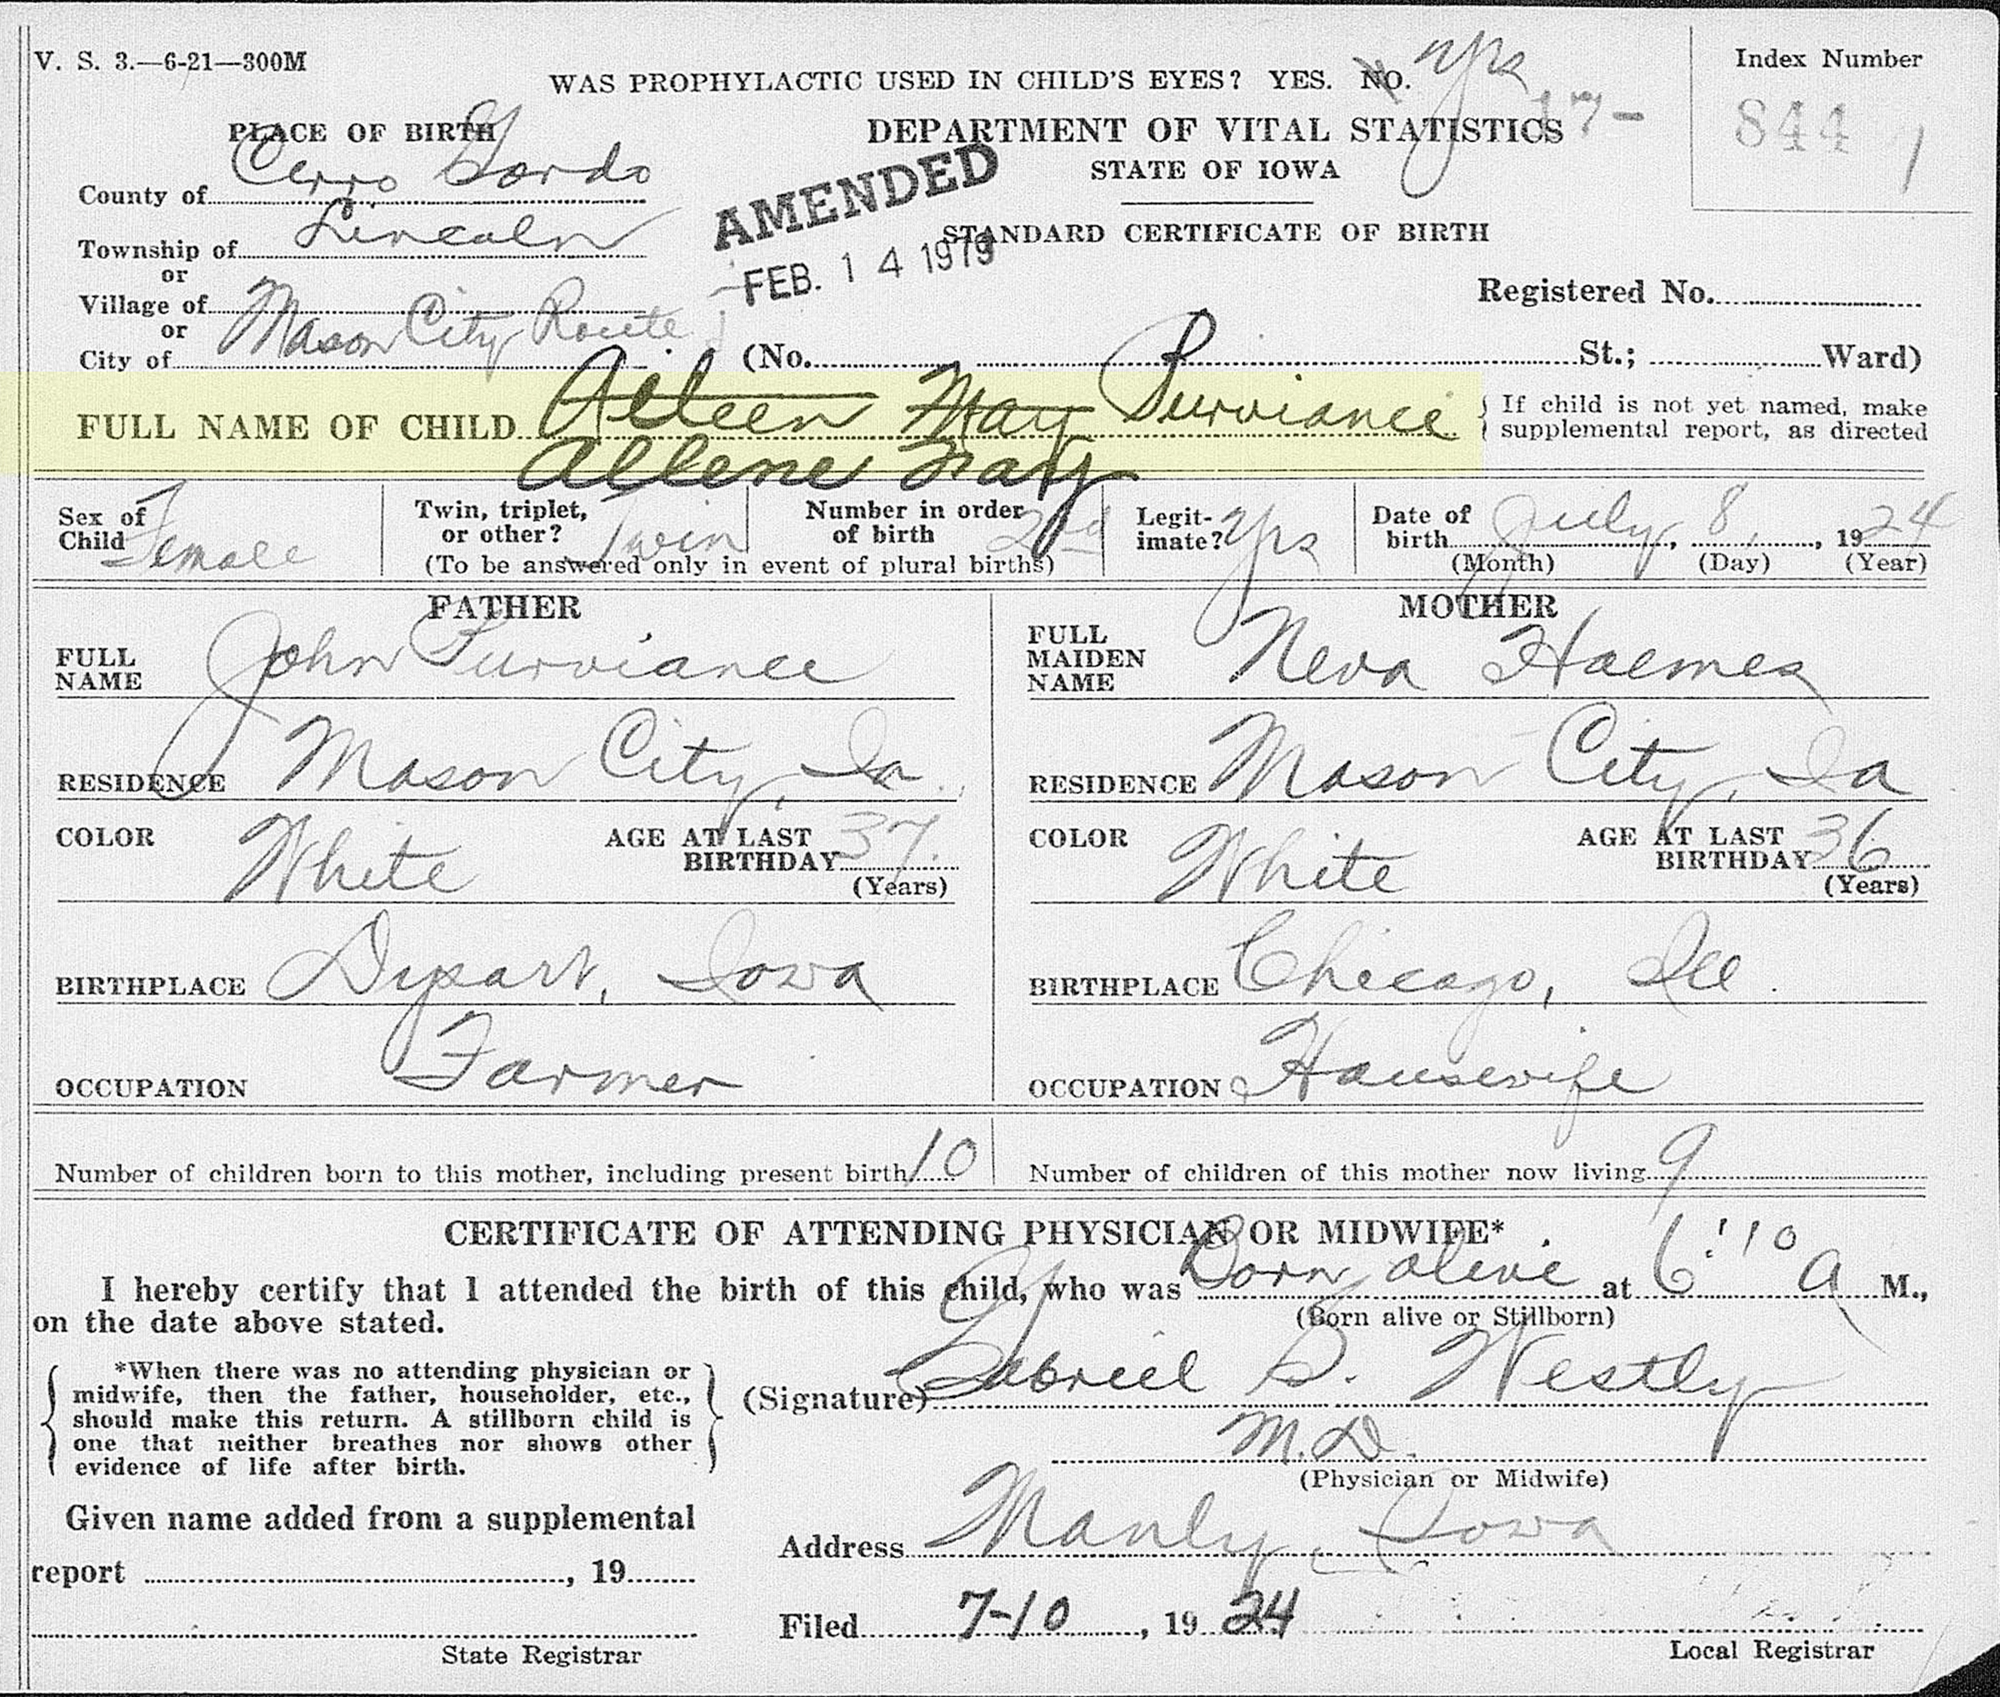 V. S. 3.—6-21—300M
WAS PROPHYLACTIC USED IN CHILD'S EYES? YES. NO. Yes
Index Number
17- 844
PLACE OF BIRTH
DEPARTMENT OF VITAL STATISTICS
STATE OF IOWA
County of Cerro Gordo
AMENDED
FEB. 14 1979
STANDARD CERTIFICATE OF BIRTH
Township of Lincoln
or
Village of
or
City of Mason City Route
Registered No.
(No. St.; Ward)
FULL NAME OF CHILD Aileen May Purviance
Allene May
{ If child is not yet named, make
{ supplemental report, as directed
Sex of Child Female
Twin, triplet, or other? Twin
Number in order of birth 2nd
(To be answered only in event of plural births)
Legitimate? Yes
Date of birth July, 8, 1924
(Month) (Day) (Year)
FATHER
MOTHER
FULL NAME John Purviance
FULL MAIDEN NAME Neva Holmes
RESIDENCE Mason City, Ia.
RESIDENCE Mason City, Ia
COLOR White AGE AT LAST BIRTHDAY 37. (Years)
COLOR White AGE AT LAST BIRTHDAY 36 (Years)
BIRTHPLACE Dysart, Iowa
BIRTHPLACE Chicago, Ill.
OCCUPATION Farmer
OCCUPATION Housewife
Number of children born to this mother, including present birth 10
Number of children of this mother now living 9
CERTIFICATE OF ATTENDING PHYSICIAN OR MIDWIFE*
I hereby certify that I attended the birth of this child, who was Born alive at 6:10 A M.,
(Born alive or Stillborn)
on the date above stated.
*When there was no attending physician or
midwife, then the father, householder, etc.,
should make this return. A stillborn child is
one that neither breathes nor shows other
evidence of life after birth.
(Signature) Gabriel S. Westly
M.D.
(Physician or Midwife)
Given name added from a supplemental
report , 19
Address Manly, Iowa
Filed 7-10, 1924
State Registrar
Local Registrar